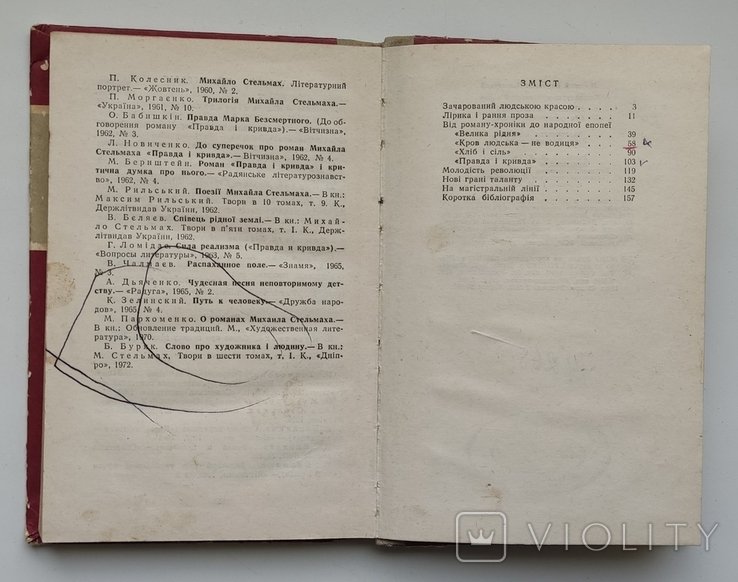 П. Колесник. Михайло Стельмах. Літературний
портрет.— «Жовтень», 1960, № 2.
П. Моргаєнко. Трилогія Михайла Стельмаха.—
«Україна», 1961, № 10.
О. Бабишкін. Правда Марка Безсмертного. (До об-
говорення роману «Правда і кривда»).— «Вітчизна»,
1962, № 3.
Л. Новиченко. До суперечок про роман Михайла
Стельмаха «Правда і кривда».— Вітчизна», 1962, № 4.
М. Бернштейн. Роман «Правда і кривда» і кри-
тична думка про нього.— «Радянське літературознавст-
во», 1962, № 4.
М. Рильський. Поезії Михайла Стельмаха.— В кн.:
Максим Рильський. Твори в 10 томах, т. 9. К.,
Держлітвидав України, 1962.
В. Бєляєв. Співець рідної землі.— В кн.: Михай-
ло Стельмах. Твори в п'яти томах, т. І. К., Держ-
літвидав України, 1962.
Г. Ломідзе. Сила реализма («Правда и кривда»).—
«Вопросы литературы», 1963, № 5.
В. Чалмаев. Распаханное поле.— «Знамя», 1965,
№ 3.
А. Дьяченко. Чудесная песня неповторимому дет-
ству.— «Радуга», 1965, № 2.
К. Зелинский. Путь к человеку.— «Дружба наро-
дов», 1965, № 4.
М. Пархоменко. О романах Михаила Стельмаха.—
В кн.: Обновление традиций. М., «Художественная лите-
ратура», 1970.
Б. Буряк. Слово про художника і людину.— В кн.:
М. Стельмах, Твори в шести томах, т. І. К., «Дніп-
ро», 1972.
ЗМІСТ
Зачарований людською красою . . . . . 3
Лірика і рання проза . . . . . 11
Від роману-хроніки до народної епопеї
«Велика рідня» . . . . . 39
«Кров людська — не водиця» . . . . . 58
«Хліб і сіль» . . . . . 90
«Правда і кривда» . . . . . 103
Молодість революції . . . . . 119
Нові грані таланту . . . . . 132
На магістральній лінії . . . . . 145
Коротка бібліографія . . . . . 157
VIOLITY